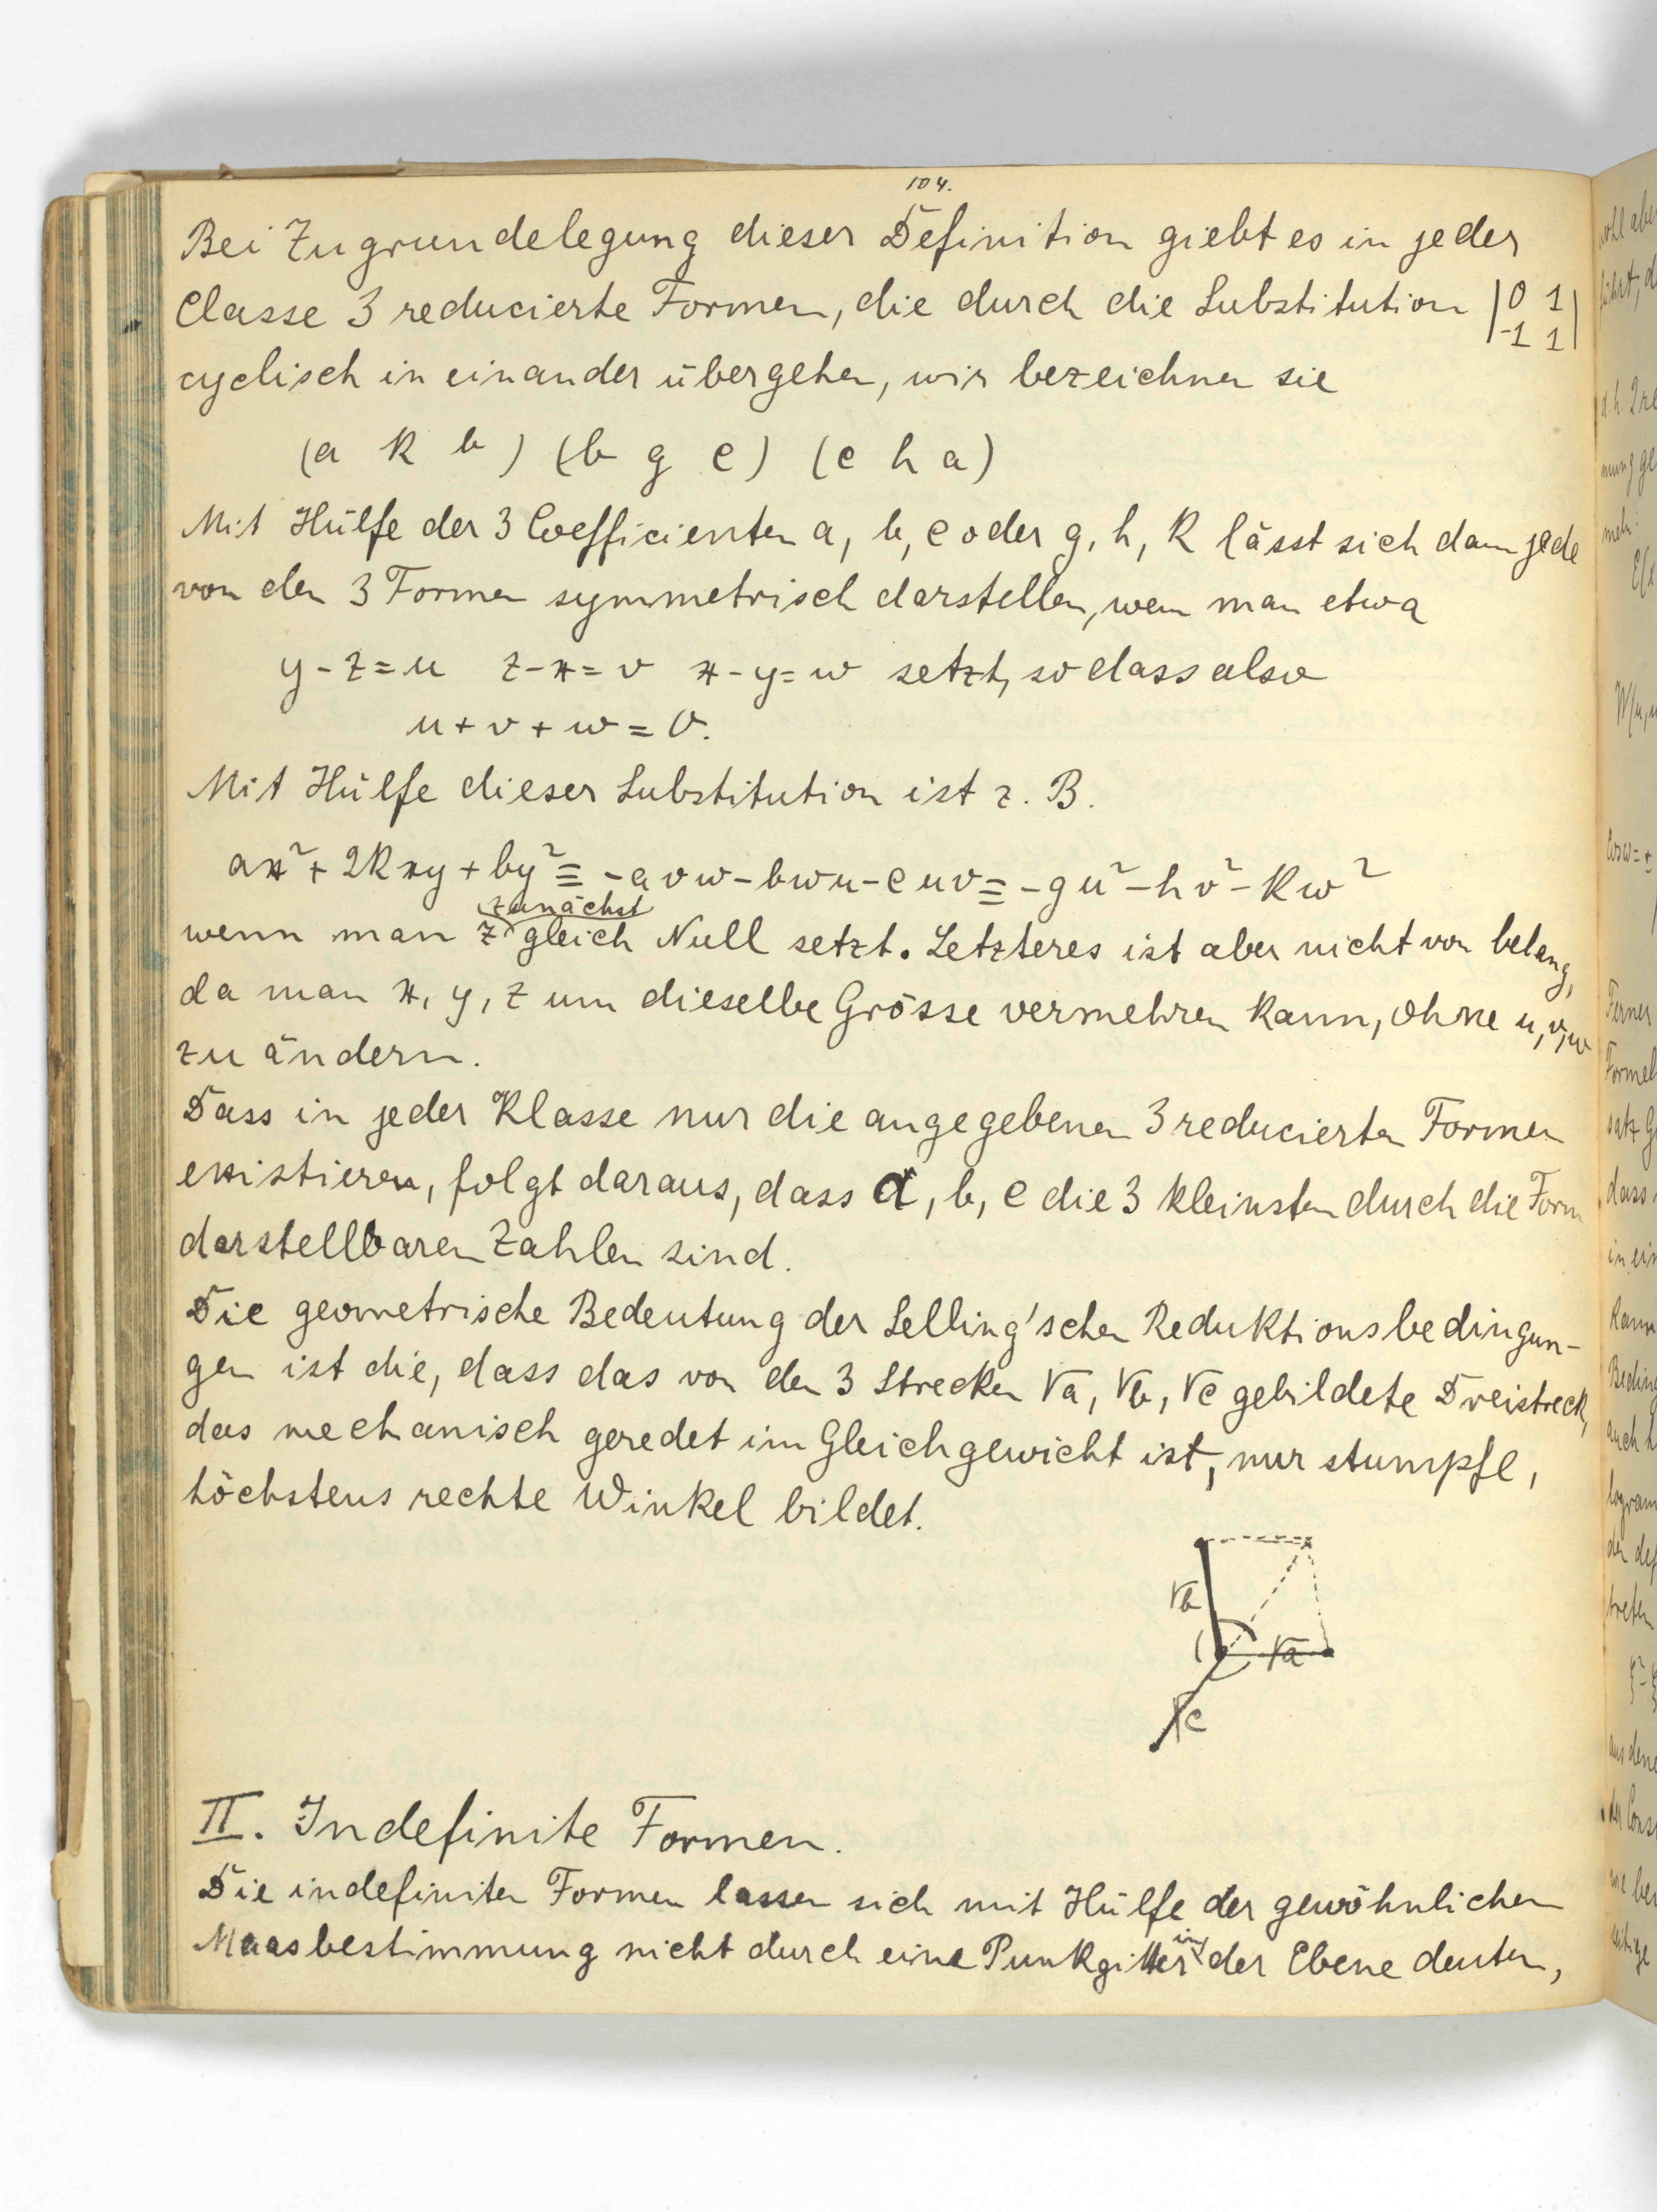 104.
Bei Zugrundelegung dieser Definition giebt es in jeder
Classe 3 reducierte Formen, die durch die Substitution |0 1
-1 1|
cyclisch in einander übergehen, wir bezeichnen sie
(a k b) (b g c) (c h a)
Mit Hülfe der 3 Coefficienten a, b, c oder g, h, k lässt sich dann jede
von den 3 Formen symmetrisch darstellen, wenn man etwa
y-z=u z-x=v x-y=w setzt, so dass also
u+v+w=0.
Mit Hülfe dieser Substitution ist z. B.
ax²+2kxy+by² ≡ -avw-bwu-cuv ≡ -gu²-hv²-kw²
zunächst
wenn man z gleich Null setzt. Letzteres ist aber nicht von belang,
da man x, y, z um dieselbe Grösse vermehren kann, ohne u,v,w
zu ändern.
Dass in jeder Klasse nur die angegebenen 3 reducierten Formen
existieren, folgt daraus, dass a, b, c die 3 kleinsten durch die Form
darstellbaren Zahlen sind.
Die geometrische Bedeutung der Selling'schen Reduktionsbedingun-
gen ist die, dass das von den 3 Strecken √a, √b, √c gebildete Dreistreck,
das mechanisch geredet im Gleichgewicht ist, nur stumpfe,
höchstens rechte Winkel bildet.
√b
√a
√c
II. Indefinite Formen.
Die indefiniten Formen lassen sich mit Hülfe der gewöhnlichen
in
Maasbestimmung nicht durch eine Punkgitter der Ebene deuten,